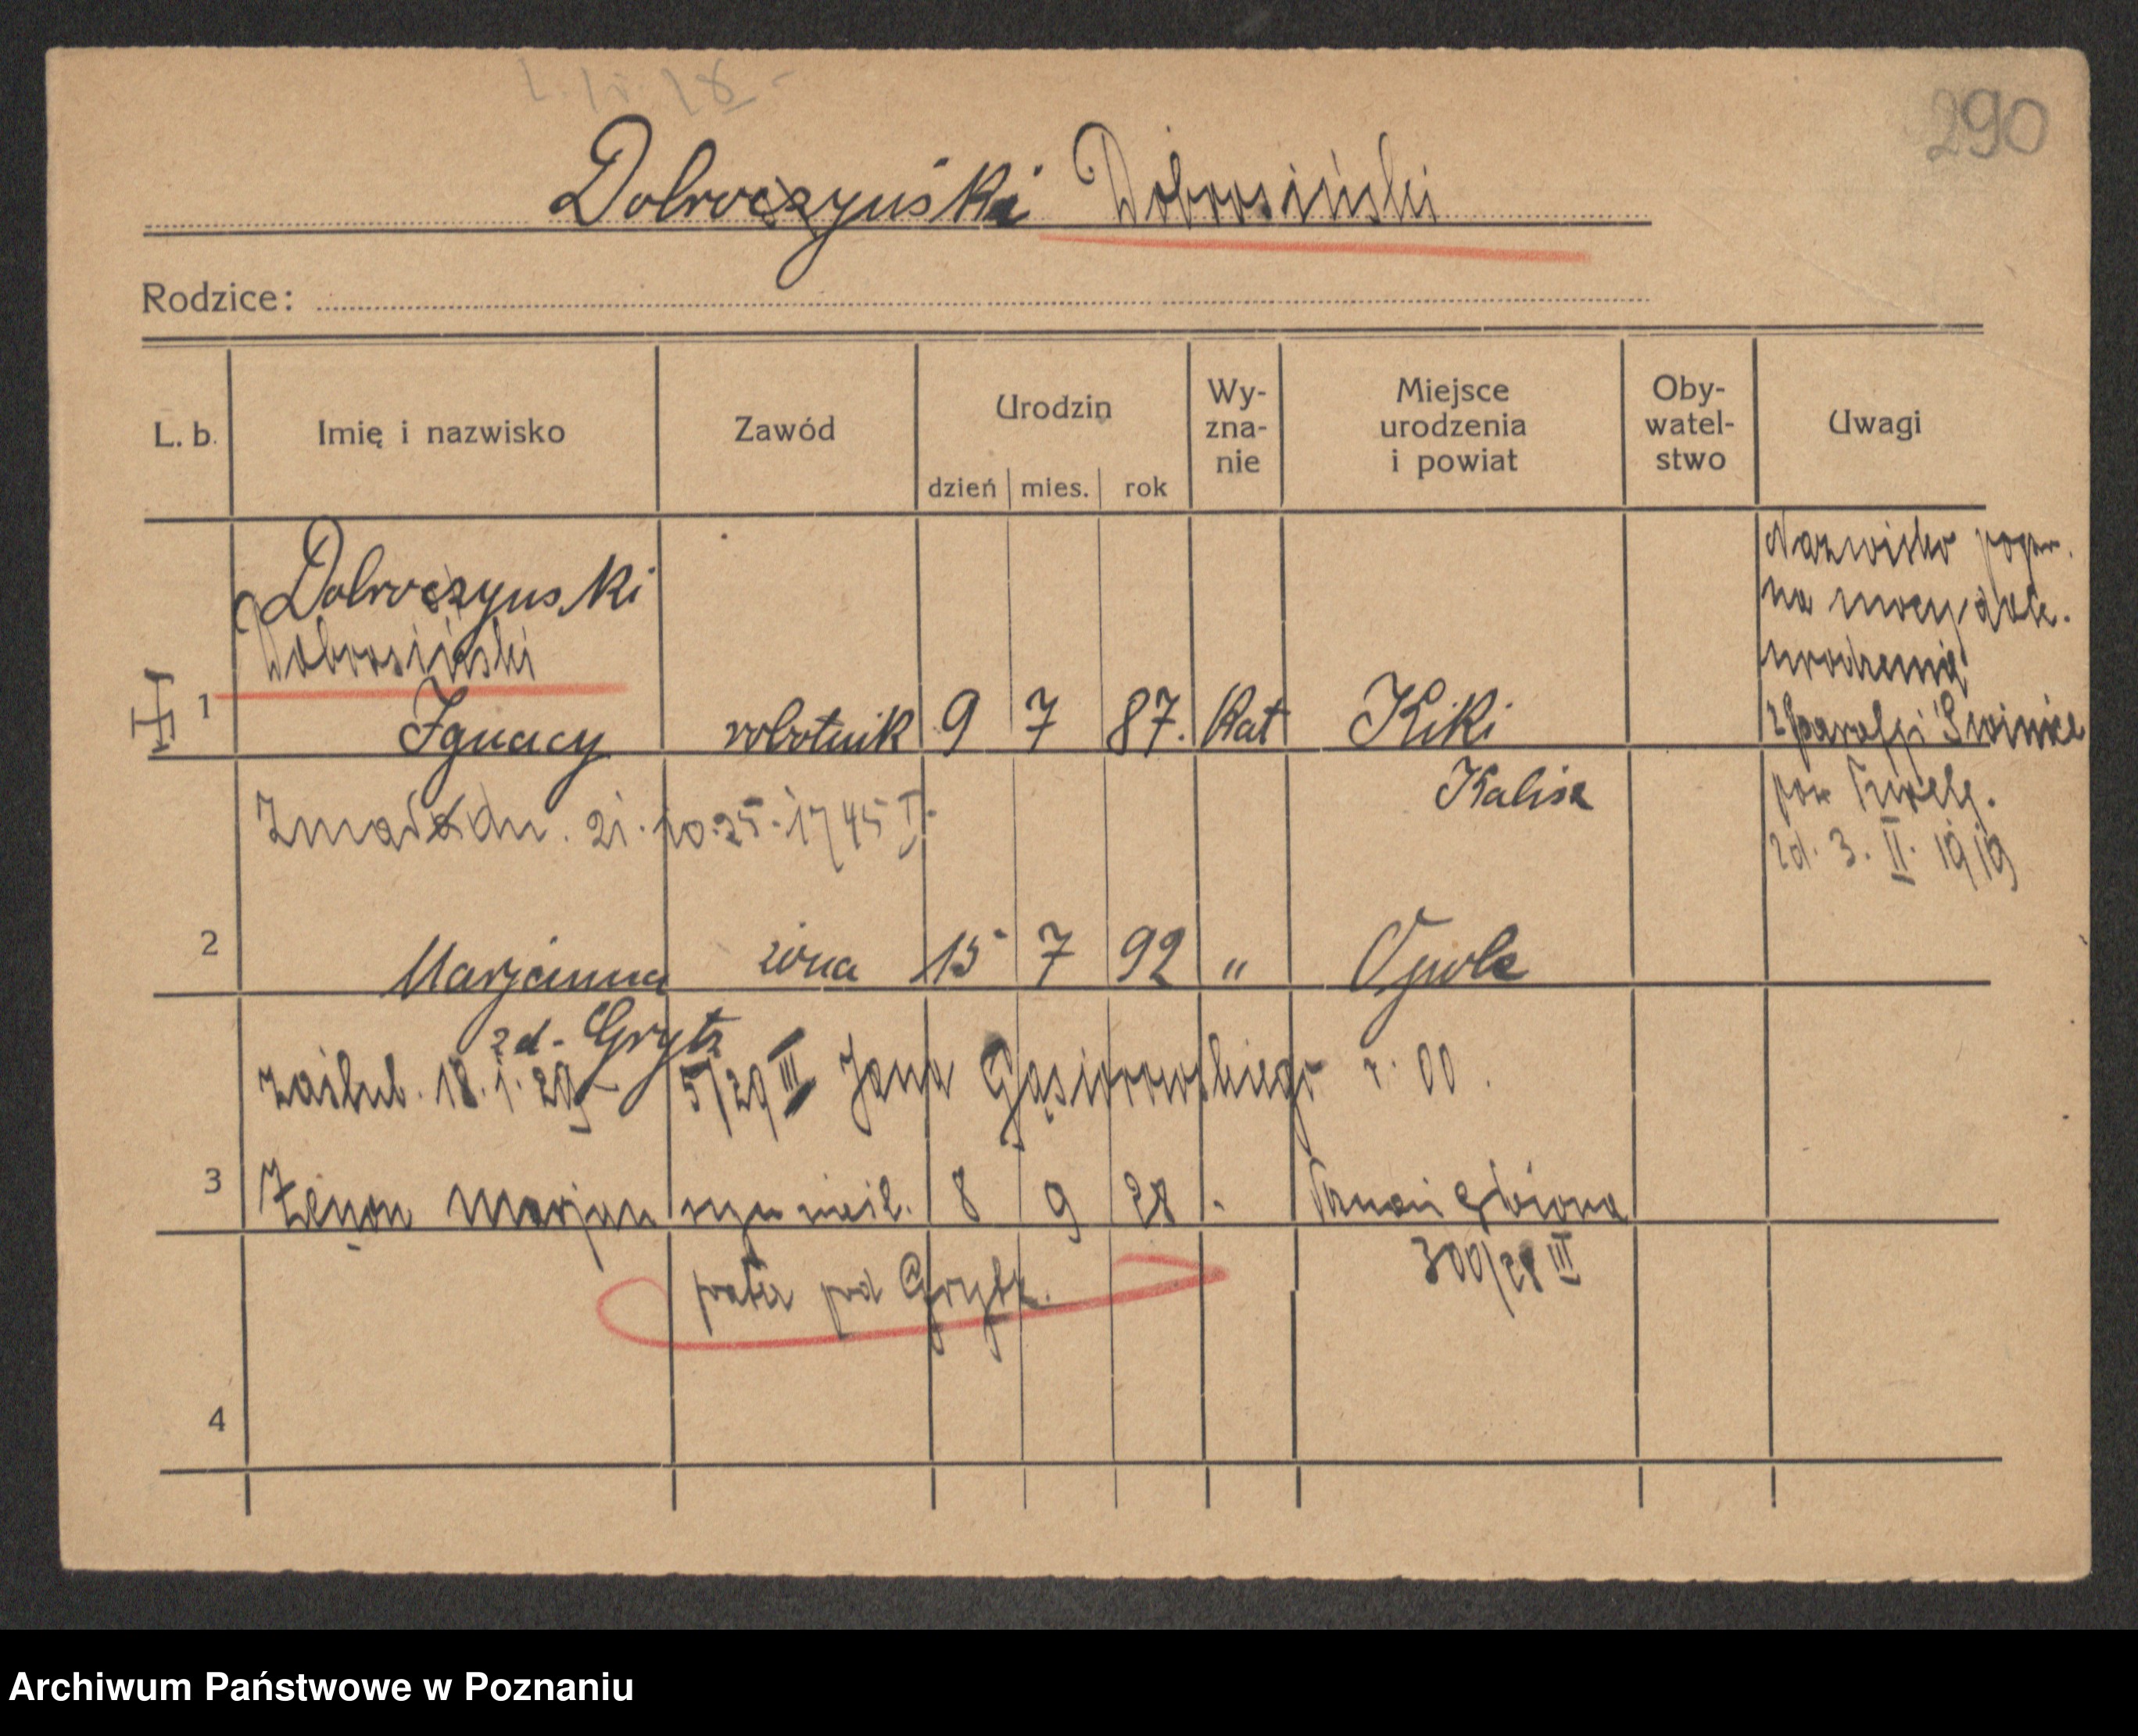 290
Dobroczyński Dobrosiński
Rodzice:
L. b.
Imię i nazwisko
Zawód
Urodzin
dzień mies. rok
Wy-
zna-
nie
Miejsce
urodzenia
i powiat
Oby-
watel-
stwo
Uwagi
Dobroczynski
Dobrosiński
1 Ignacy robotnik 9 7 87. Kat Kiki
Kalisz
Nazwisko popr.
na mocy dok.
urodzenia
z parafji Swinice
pow.
zd. 3. II. 1919
Zmarł dn. 21.10.25. 1745 I.
2 Marjanna żona 15 7 92 " Opole
zd. Grytz
zaślub. 18.1.29 - 5/29 III Jana Gąsiorowskiego r. 00.
3 Zenon Marjan syn nieśl. 8 9 28 Poznań
300/28 III
patrz pod Grytz.
4
Archiwum Państwowe w Poznaniu